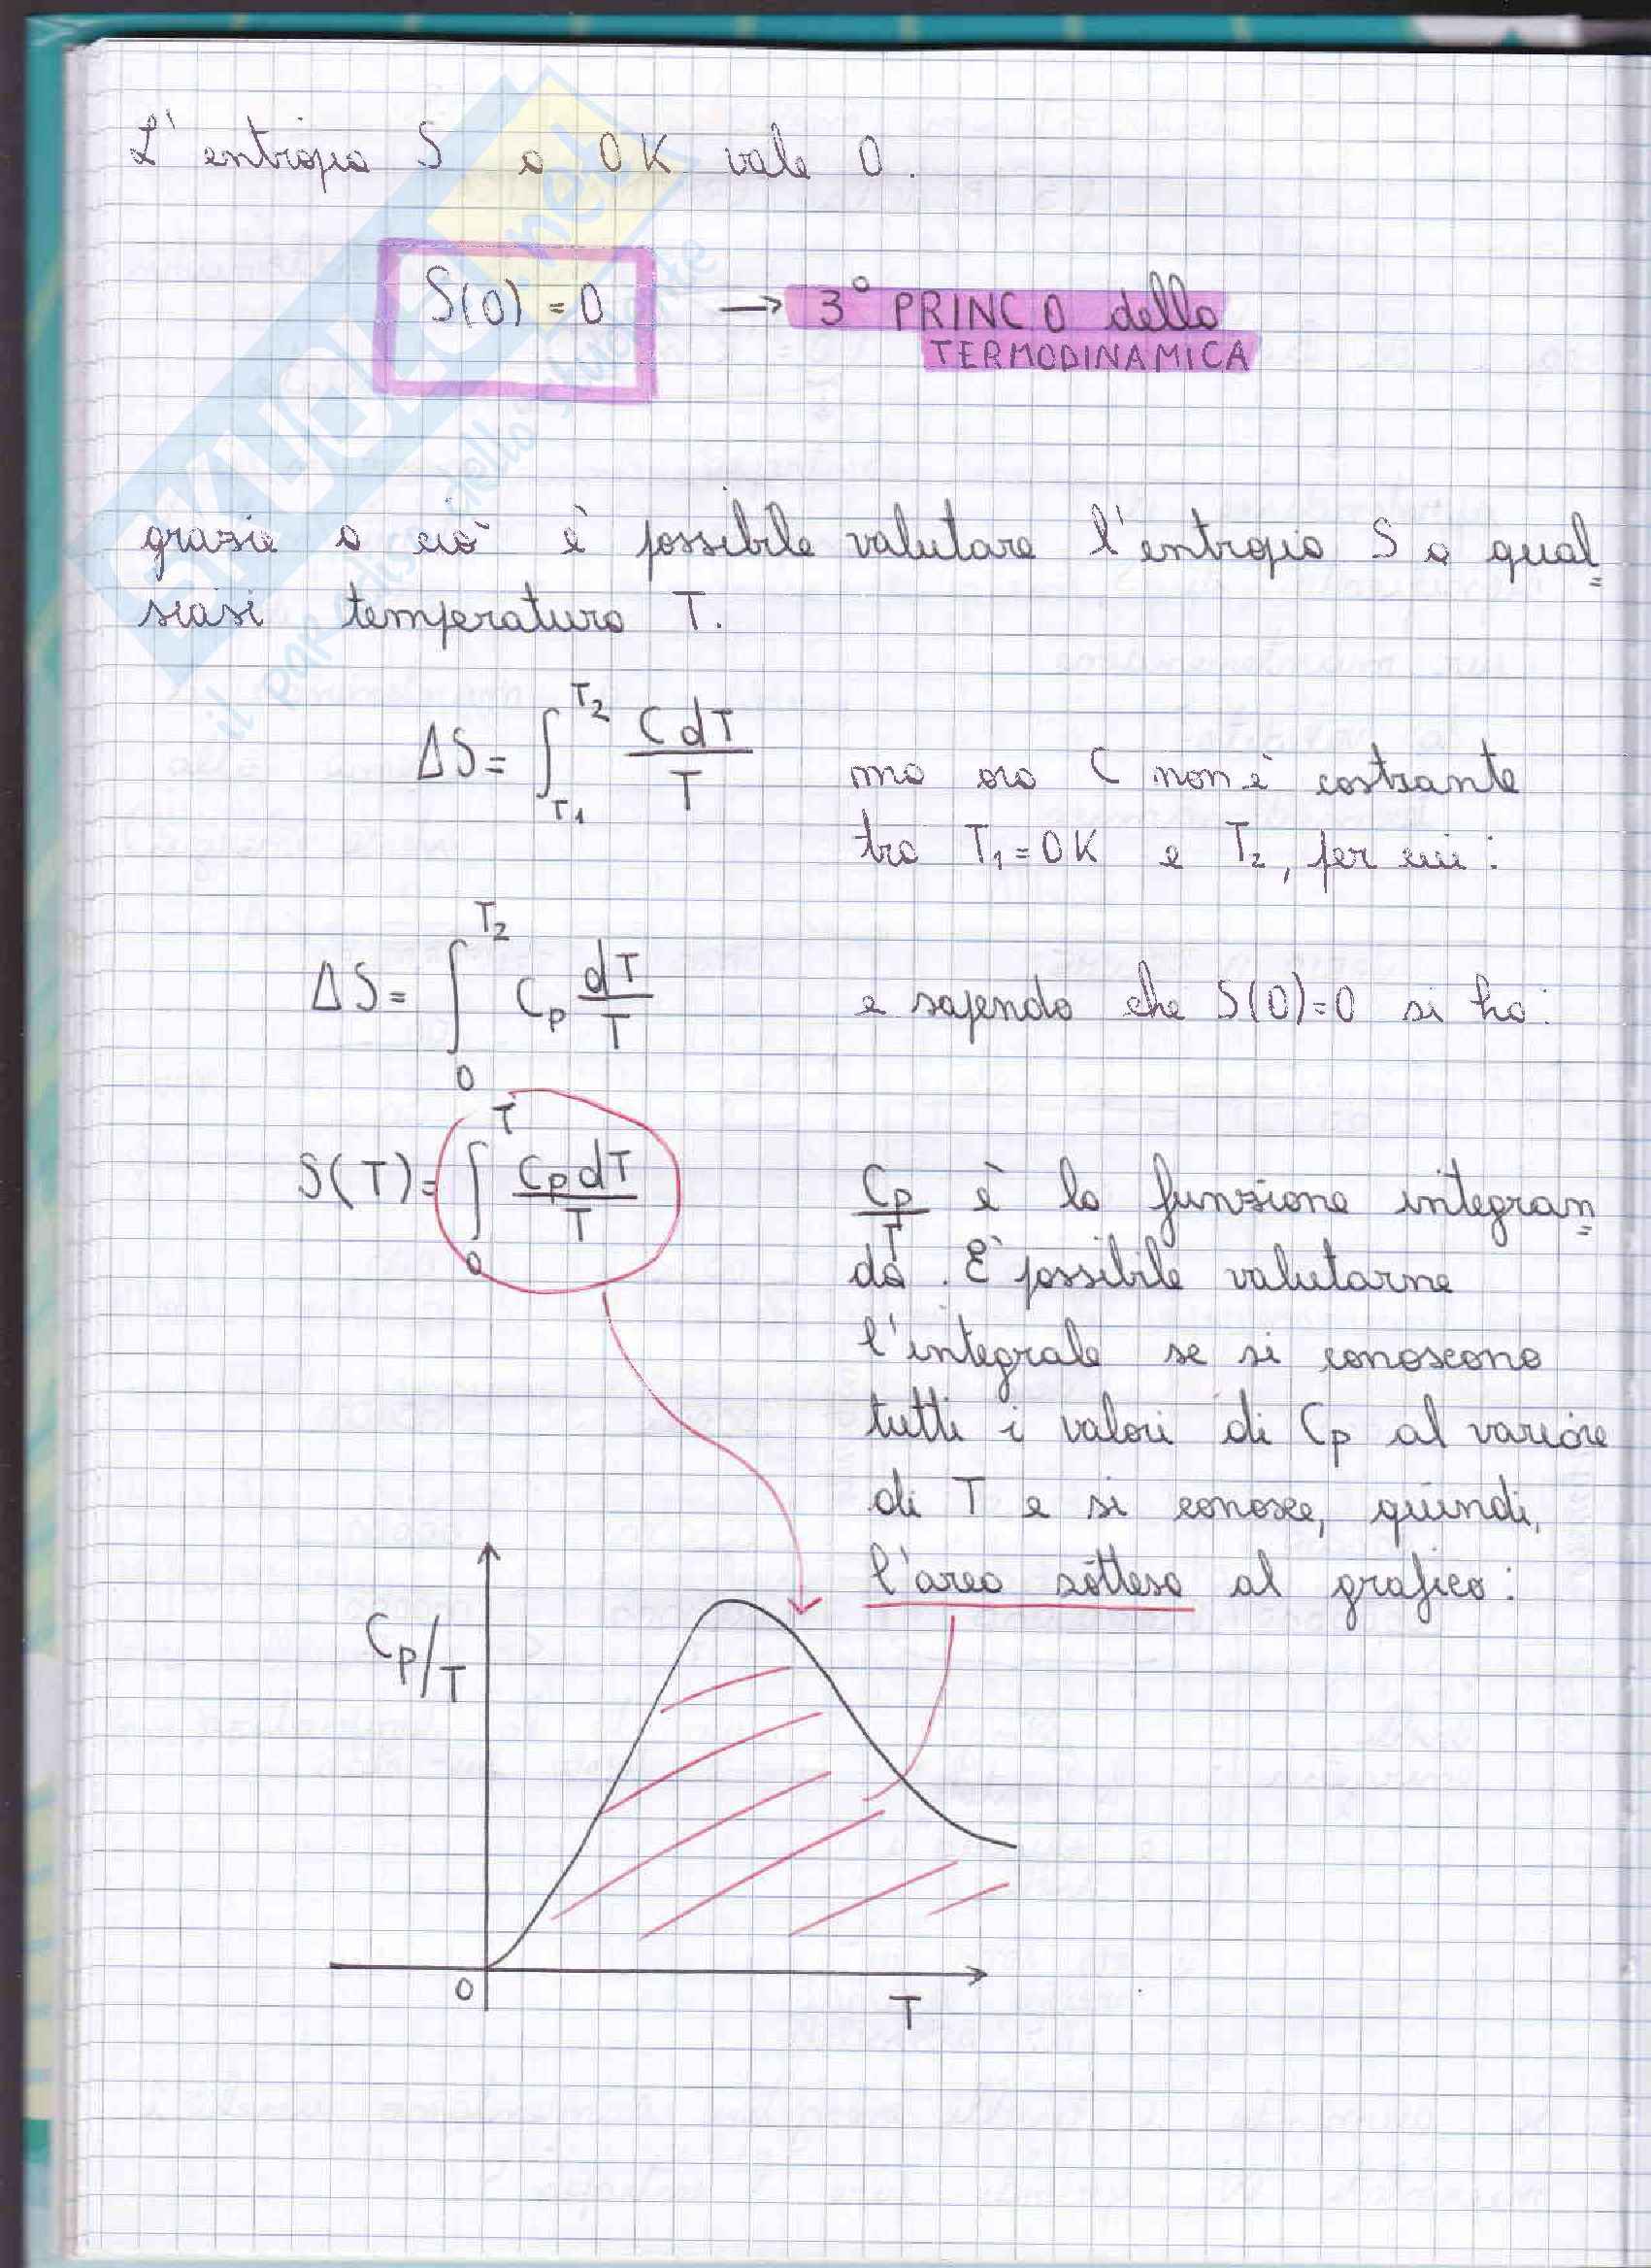 L'entropia S a 0 K vale 0.
S(0) = 0 → 3° PRINC O della
TERMODINAMICA
grazie a ciò è possibile valutare l'entropia S a qual=
siasi temperatura T.
ΔS = ∫_{T1}^{T2} C dT / T ma ora C non è costante
tra T1 = 0 K e T2, per cui:
ΔS = ∫_0^{T2} Cp dT / T e sapendo che S(0)=0 si ha:
S(T) = ∫_0^T Cp dT / T Cp/T è la funzione integran=
da. E' possibile valutarne
l'integrale se si conoscono
tutti i valori di Cp al variare
di T e si conosce, quindi,
l'area sottesa al grafico:
Cp/T
0
T
SKUOLA.net
il paradiso dello studente